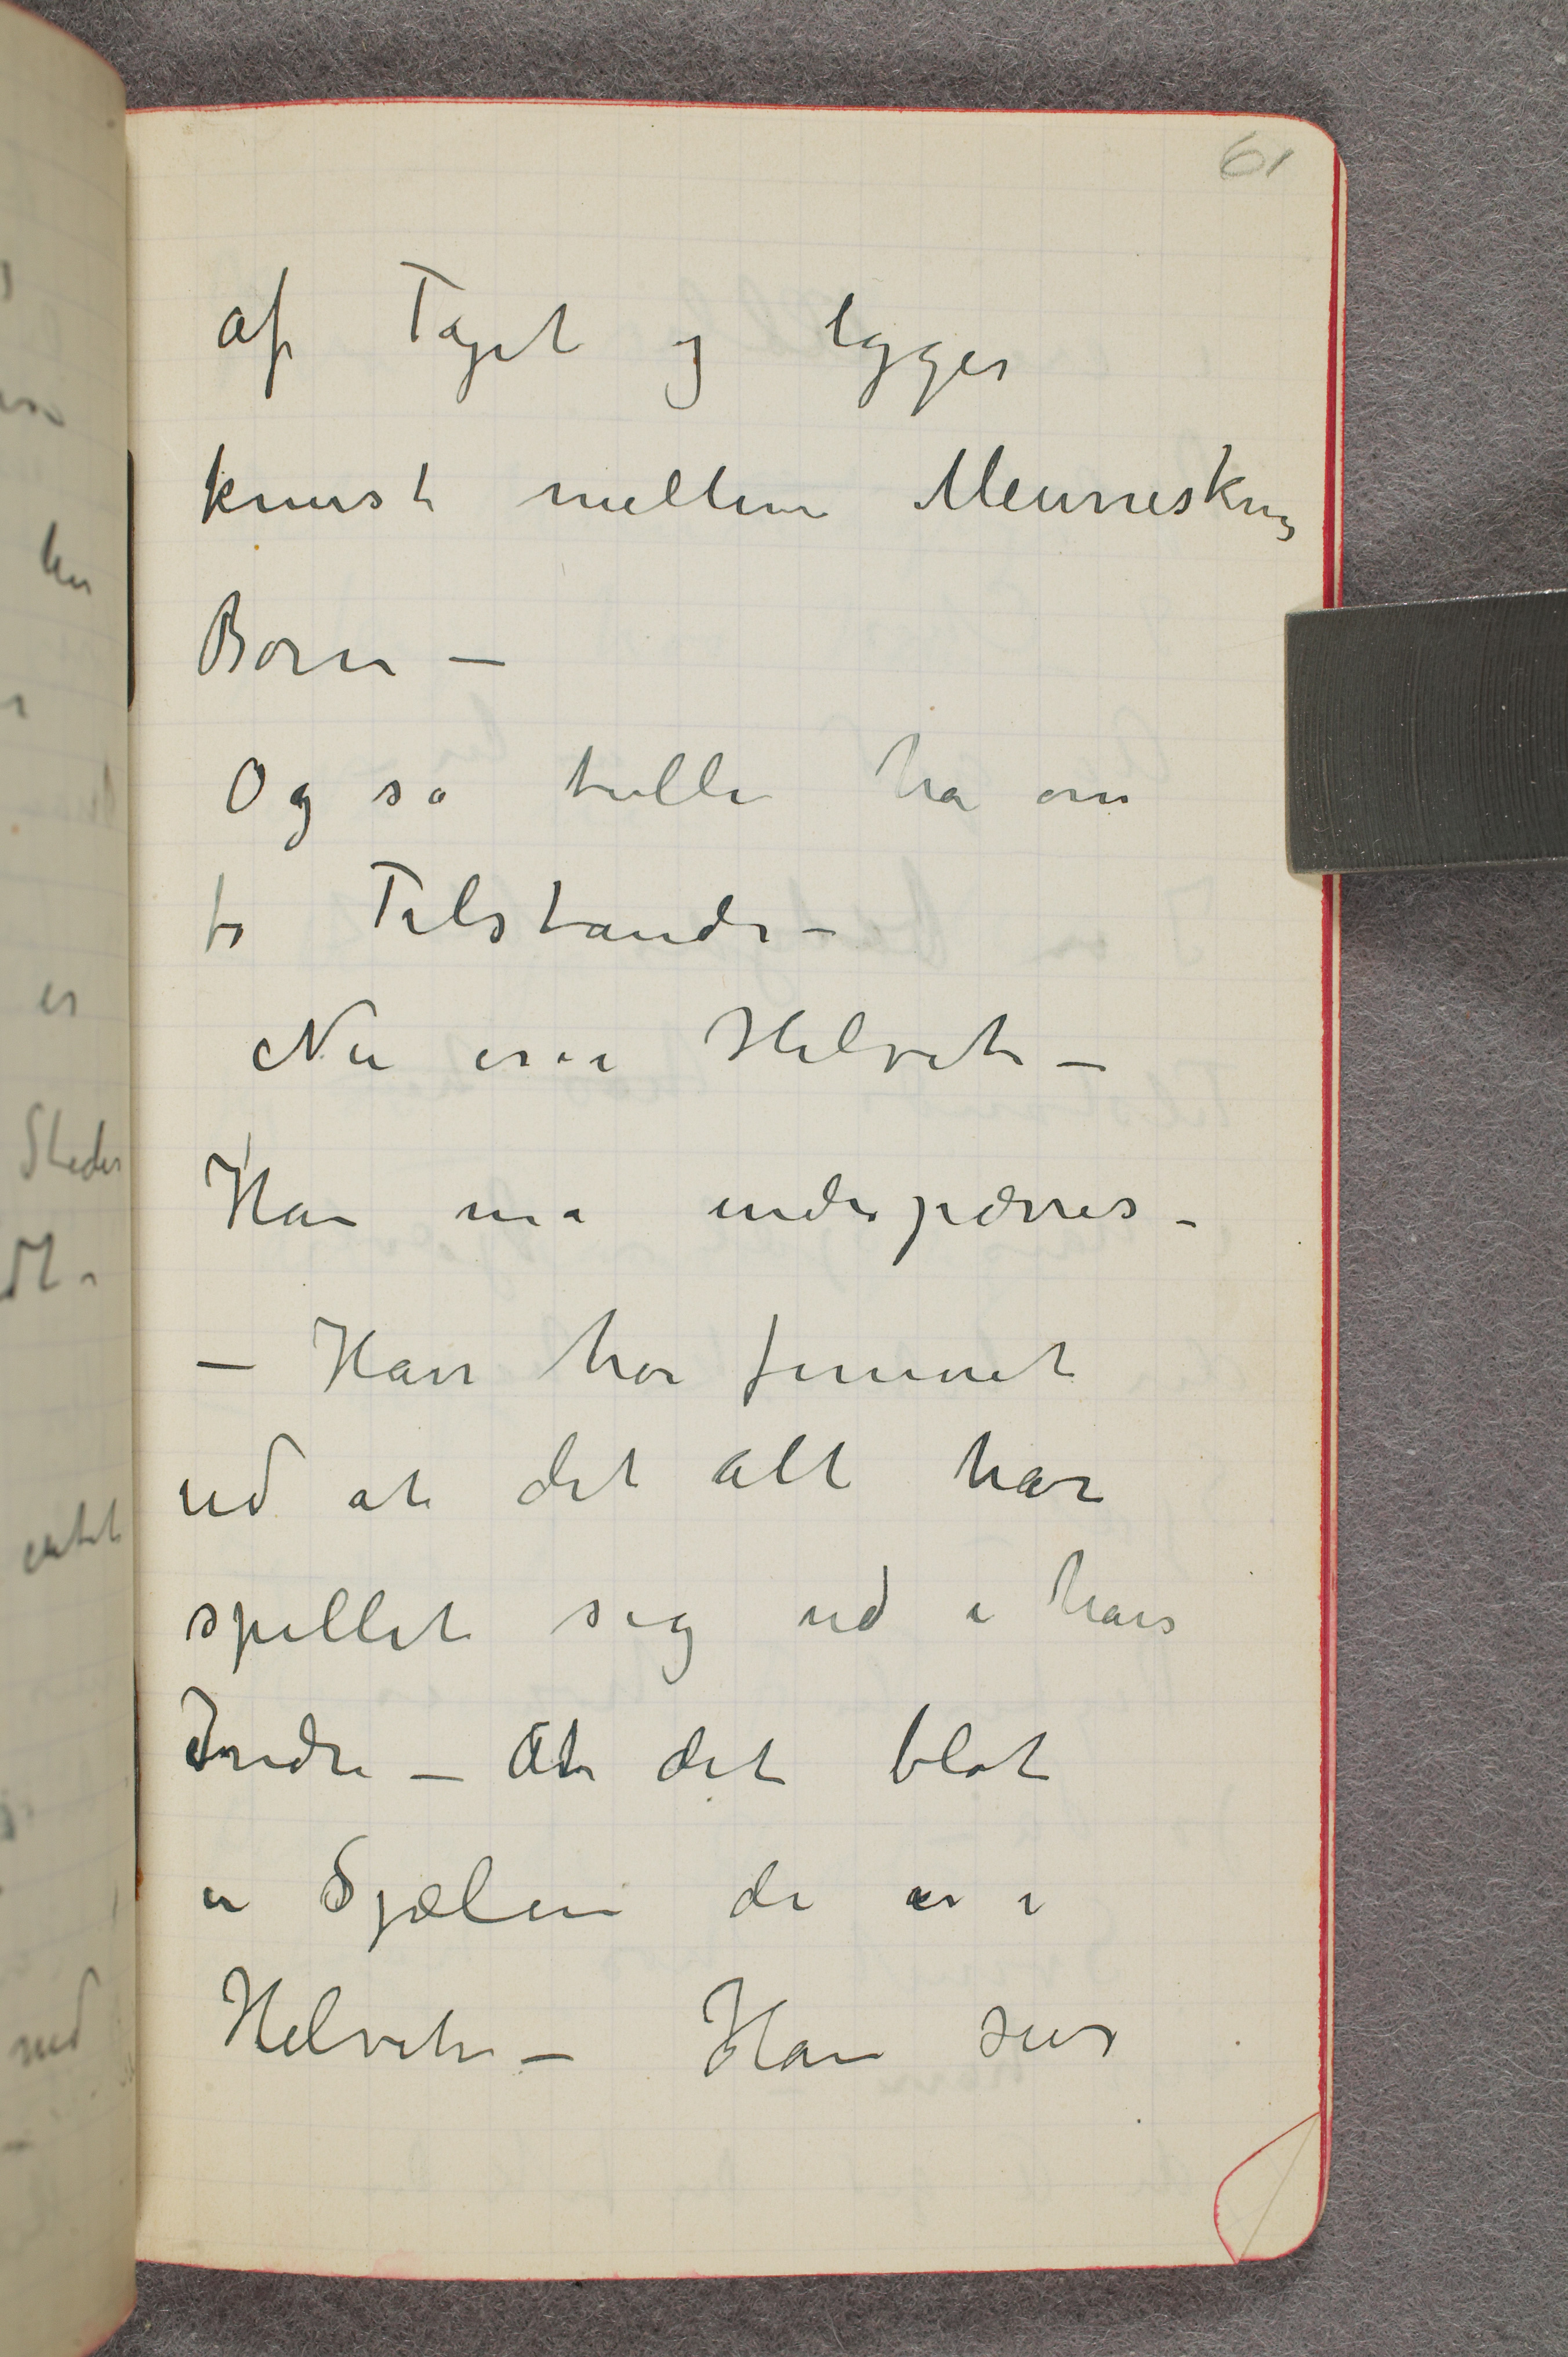 61
af Taget og lgger
knust mellem Menneskens
Born –
Og så tulle ha om
to Tilstande –
Nu er i Helvete –
Han må indespærres –
– Han har funnet
ud at det alt har
spillet sig ud i hans
Indre – At det blot
er Sjælen der er i
Helvete – Han sees